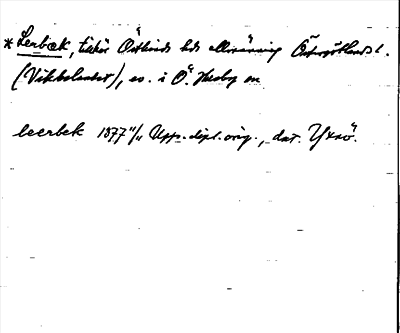 *Lerbæk, tidigt Östkinds hds allmänning Östergötlands l.
(Vikbolandet), ev. i Ö. Husby sn
leerbek 1377 11/11 Upps. dipl. orig., dat. Yxnö.